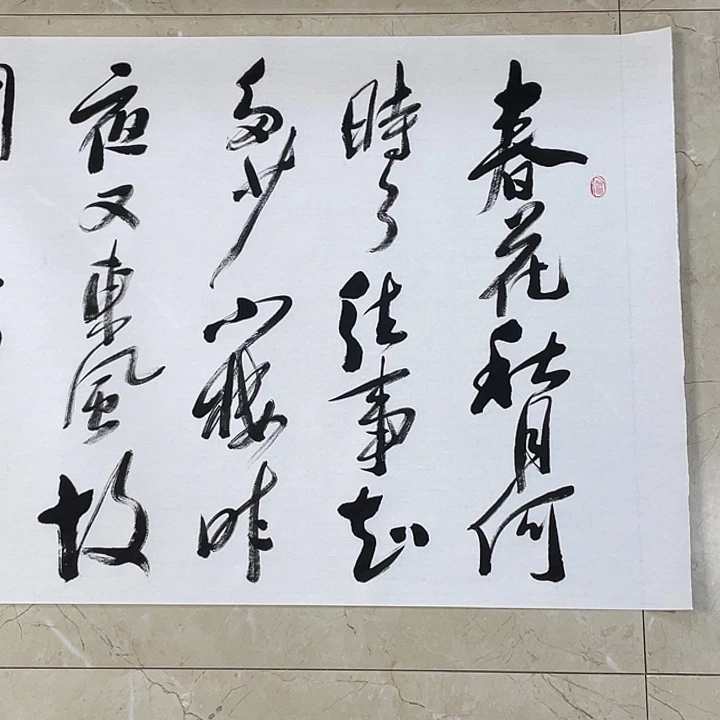 春花秋月何
時了往事知
多少小樓昨
夜又東風故